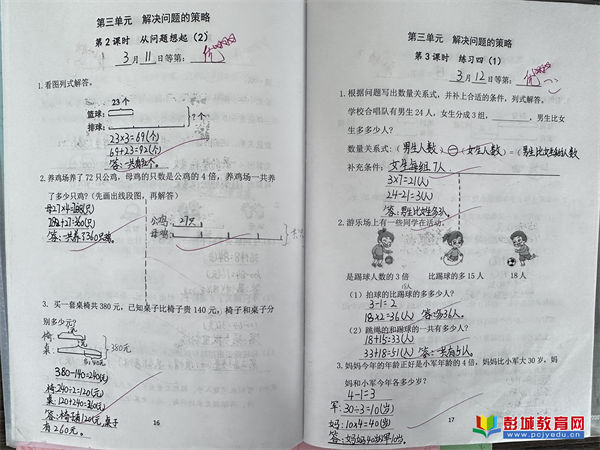 第三单元 解决问题的策略
第2课时 从问题想起(2)
3月11日等第: 优
1.看图列式解答。
23个
篮球:
排球:
?个
23×3=69(个)
69+23=92(个)
2.养鸡场养了72只公鸡,母鸡的只数是公鸡的4倍,养鸡场一共养
了多少只鸡?(先画出线段图,再解答)
公鸡:
母鸡:
3. 买一套桌椅共380元,已知桌子比椅子贵140元,椅子和桌子分
别多少元?
椅:
桌:
380元
380-140=240(元)
椅:240÷2=120(元)
答:椅子有120元,桌子
有260元。
16
第三单元 解决问题的策略
第3课时 练习四(1)
3月12日等第: 优
1.根据问题写出数量关系式,并补上合适的条件,列式解答。
学校合唱队有男生24人,女生分成3组,,男生比女
生多多少人?
数量关系式:(男生人数)-(女生人数)=(男生比女生多的人数)
补充条件:女生每组7人
3×7=21(人)
24-21=3(人)
答:男生比女生多3人。
2.游乐场上有一些同学在活动。
是踢球人数的3倍 比踢球的多15人 18人
(1)拍球的比踢球的多多少人?
3-1=2
18×2=36(人) 答:多36人。
(2)跳绳的和踢球的一共有多少人?
18+15=33(人)
33+18=51(人) 答:一共有51人。
3.妈妈今年的年龄正好是小军年龄的4倍,妈妈比小军大30岁,妈
妈和小军今年各多少岁?
4-1=3
军:30÷3=10(岁)
妈:10×4=40(岁)
17
彭城教育网
www.pcjyedu.cn